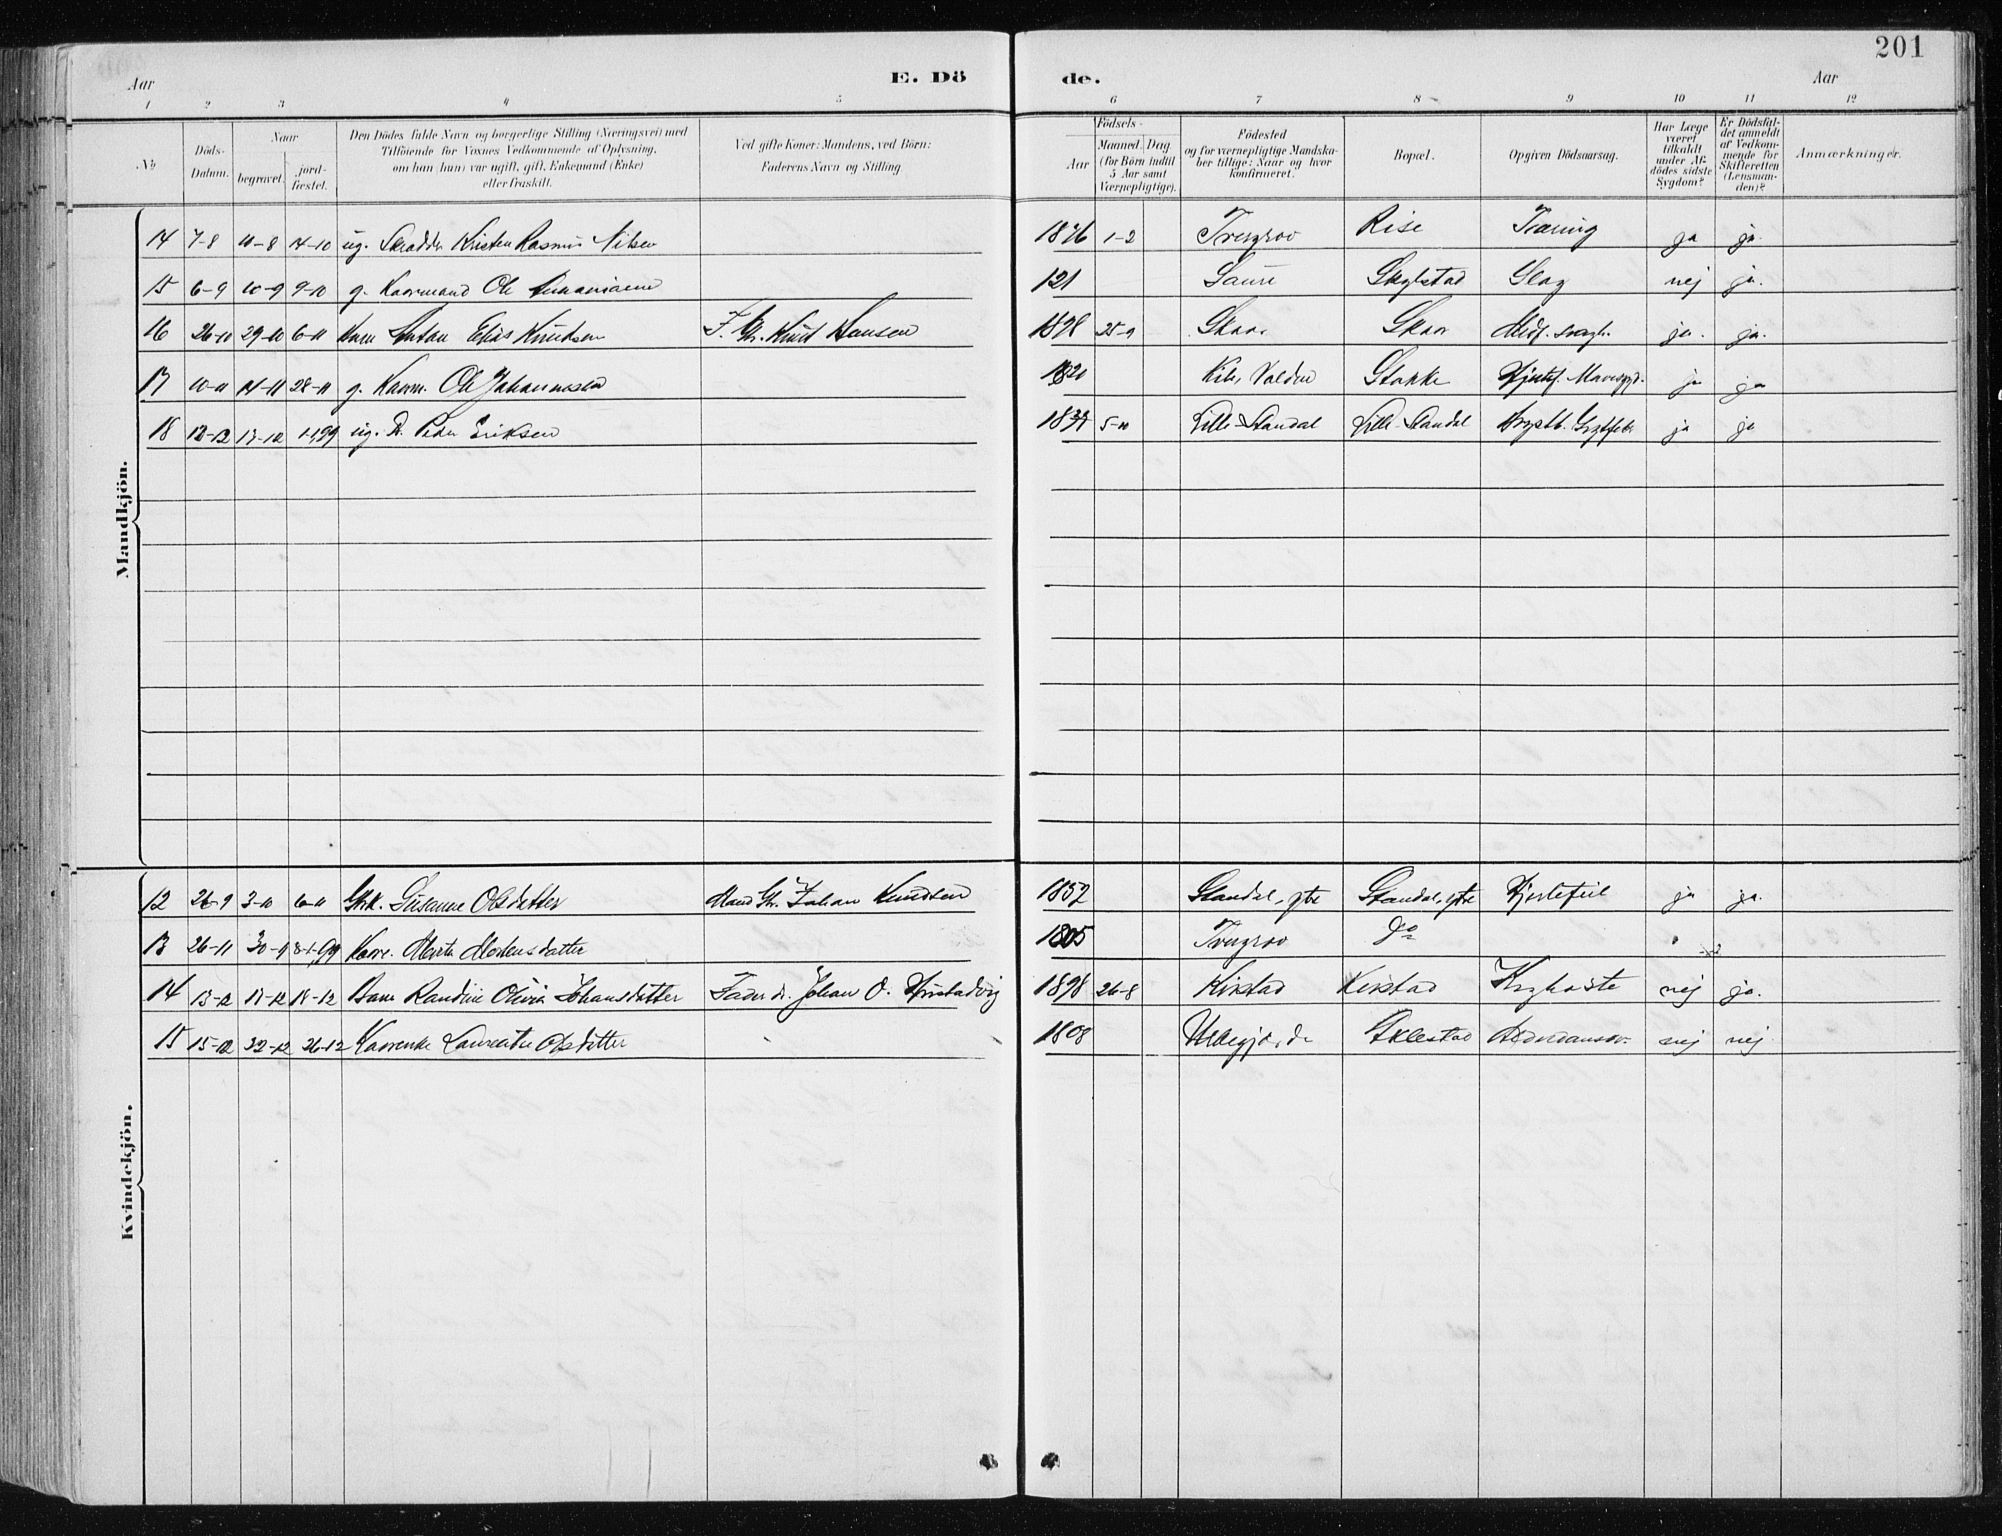 201
Aar E. Dö de. Aar
1 2 3 4 5 6 7 8 9 10 11 12
№
Döds-Datum.
Naar
begravet.
jord-fæstet.
Den Dödes fulde Navn og borgerlige Stilling (Næringsvei) med
Tilföiende for Voxnes Vedkommende af Oplysning,
om han (hun) var ugift, gift, Enkemand (Enke)
eller fraskilt.
Ved gifte Koner: Mandens, ved Börn:
Faderens Navn og Stilling.
Födsels-
Aar
Maaned. Dag
(for Börn indtil
5 Aar samt
Værnepligtige).
Födested
og for værnepligtige Mandska-
ber tillige: Naar og hvor
konfirmeret.
Bopæl.
Opgiven Dödsaarsag.
Har Læge
været
tilkaldt
under Af-
dödes sidste
Sygdom?
Er Dödsfal-
det anmeldt
af Vedkom-
mende for
Skifteretten
(Lensman-
den)?
Anmærkninger.
Mandkjön.
14 7-8 10-8 14-10 ug. Skrædder Kristen Rasmus Nilsen 1876 1-2 Rise Tæring ja ja.
15 6-9 10-9 9-10 g. Kaarmand Ole 121 Saure Slag nej ja.
16 26-10 29-10 6-11 Barn Anton Elias Knudsen F. Gbr. Knut Hansen 1898 25-9 Skaar Skaar Medf. svagh. ja. ja.
17 10-11 14-11 28-11 g. Kaarm. Ole Johannessen 1820 Stokke ja ja
18 12-12 17-12 1-1 99 ug. D. Peder Eriksen 5-11 Lille-Standal Lille-Standal ja ja
Kvindekjön.
12 26-9 3-10 6-11 Gbrk. Susanne Olsdatter Mand Gbr. Johan Knudsen 1852 Standal, ytre Standal, ytre Hjertefeil ja ja.
13 26-11 30-11 8-1-99 Kaare. Marte Mortensdatter 1805 Do
14 13-12 17-12 18-12 Barn Randine Olivia Johansdatter Fader Johan O. 1898 26-8 Kirstad Kirstad Kighoste nej ja.
15 15-12 22-12 26-12 Kaarenke Laurentse Olsdatter 1808 nej nej